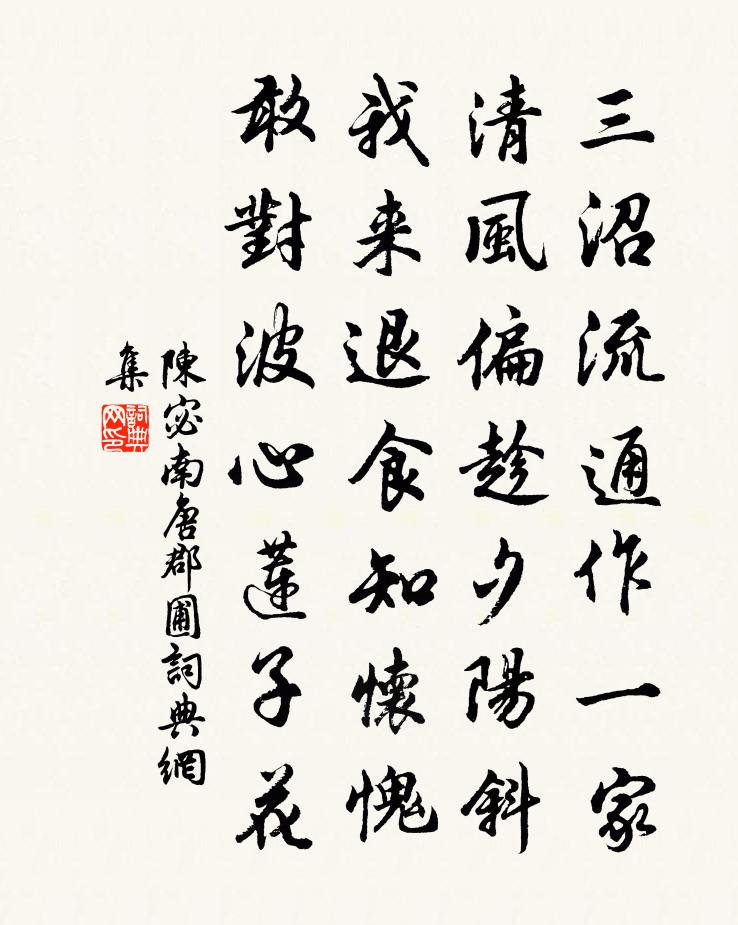 三沼流通作一家
清風偏趁夕陽斜
我来退食知懷愧
敢對波心蓮子花
陳宓南唐郡圃詞典網
集
詞典网印